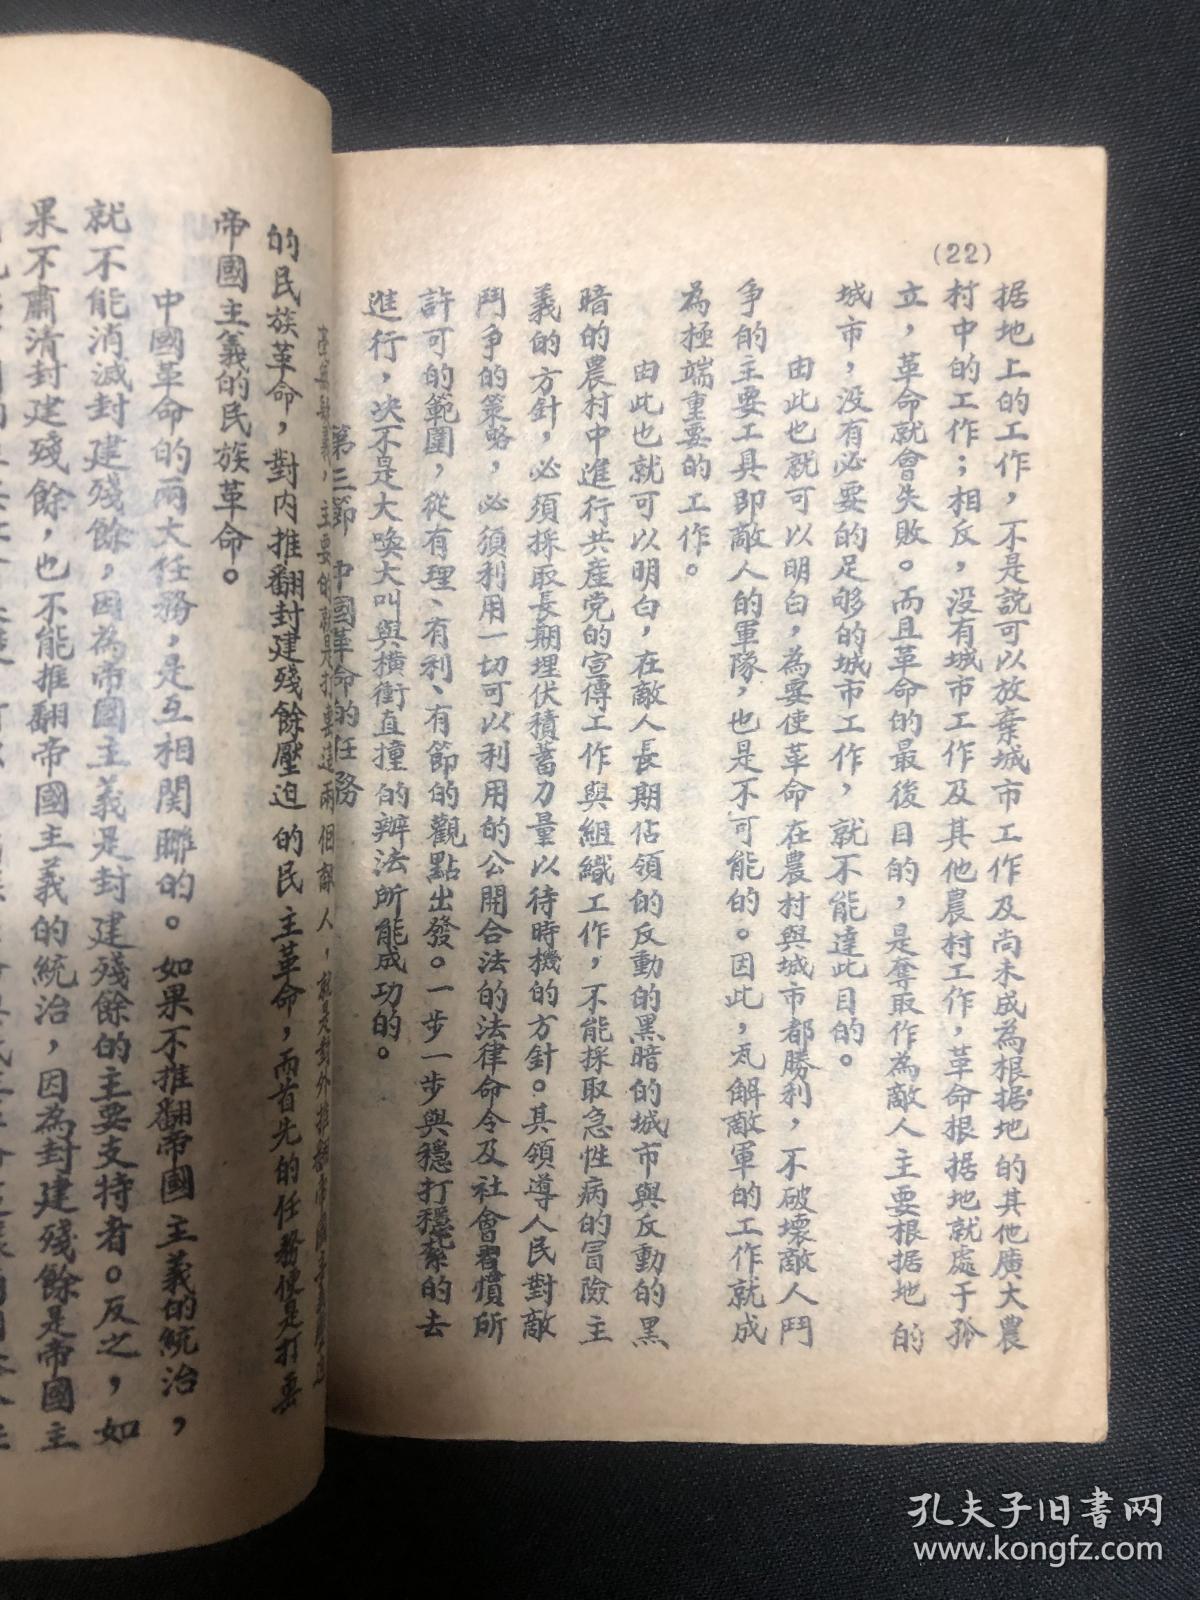 (22)
据地上的工作，不是說可以放棄城市工作及尚未成為根据地的其他廣大農
村中的工作；相反，没有城市工作及其他農村工作，革命根据地就處于孤
立，革命就會失敗。而且革命的最後目的，是奪取作為敵人主要根据地的
城市，没有必要的足够的城市工作，就不能達此目的。
由此也就可以明白，為要使革命在農村與城市都勝利，不破壞敵人鬥
争的主要工具即敵人的軍隊，也是不可能的。因此，瓦解敵軍的工作就成
為極端重要的工作。
由此也就可以明白，在敵人長期佔領的反動的黑暗的城市與反動的黑
暗的農村中進行共産党的宣傳工作與組織工作，不能採取急性病的冒險主
義的方針，必須採取長期埋伏積蓄力量以待時機的方針。其領導人民對敵
鬥争的策略，必須利用一切可以利用的公開合法的法律命令及社會習慣所
許可的範圍，從有理、有利、有節的觀點出發。一步一步與穩打穩紮的去
進行，决不是大喚大叫與横衝直撞的辦法所能成功的。
第三節 中國革命的任務
主要的就是打擊這兩個敵人，就是對外推翻帝國主義壓迫
的民族革命，對内推翻封建殘餘壓迫的民主革命，而首先的任務便是打擊
帝國主義的民族革命。
中國革命的兩大任務，是互相関聯的。如果不推翻帝國主義的統治，
就不能消滅封建殘餘，因為帝國主義是封建殘餘的主要支持者。反之，如
果不肅清封建殘餘，也不能推翻帝國主義的統治，因為封建殘餘是帝國主
孔夫子旧書网
www.kongfz.com